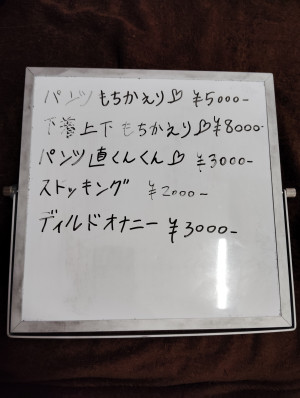 パンツもちかえり♡ ¥5000-
下着上下もちかえり♡¥8000-
パンツ直くんくん♡ ¥3000-
ストッキング ¥2000-
ディルドオナニー ¥3000-